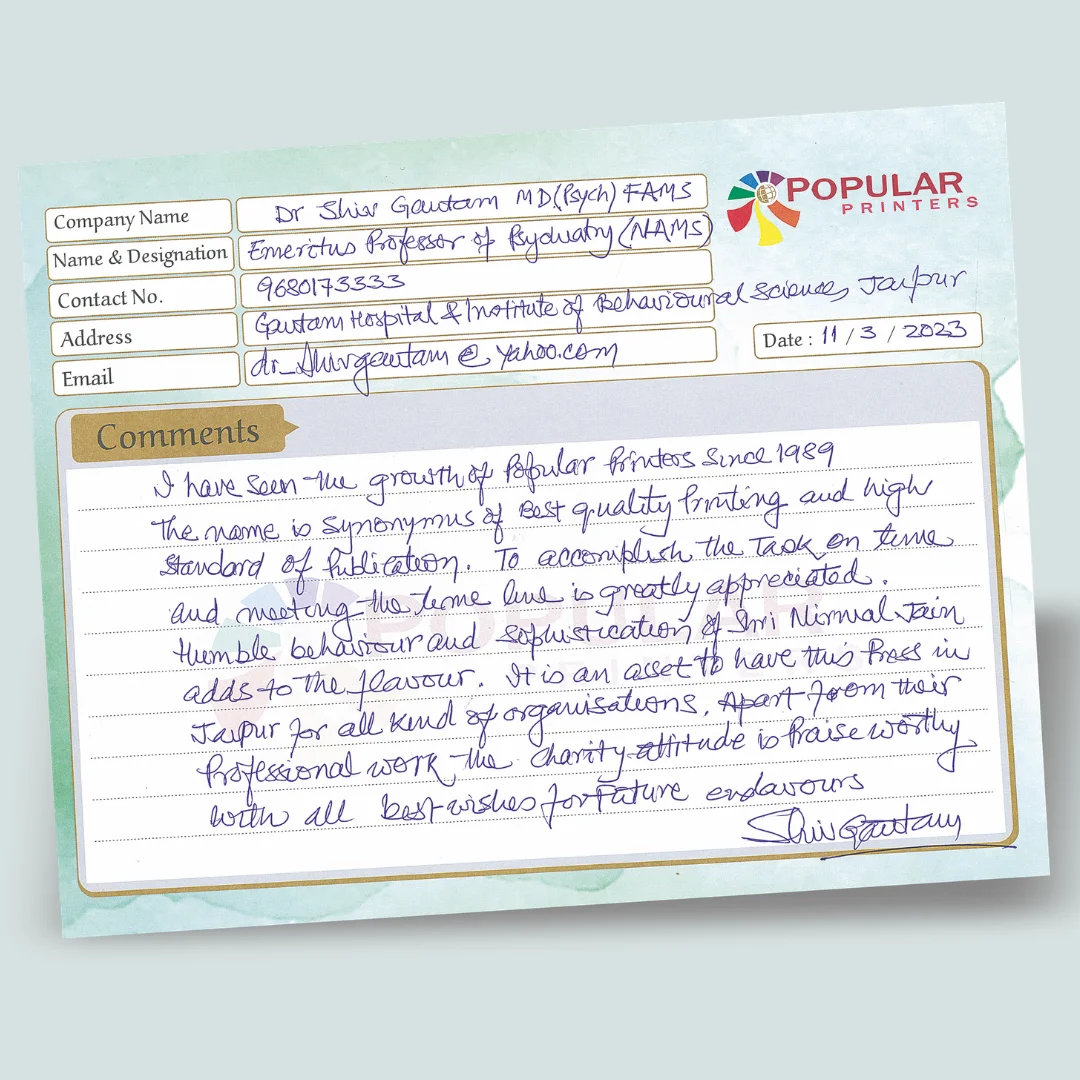 POPULAR
PRINTERS
Company Name Dr Shiv Gautam MD(Psych) FAMS
Name & Designation Emeritus Professor of Psychiatry (NAMS)
Contact No. 9680173333
Address Gautam Hospital & Institute of Behavioural Sciences, Jaipur
Email dr_shivgautam@yahoo.com
Date : 11 / 3 / 2023
Comments
I have seen the growth of Popular Printers since 1989
The name is synonymus of Best quality Printing and high
standard of Publication. To accomplish the Task on time
and meeting the time line is greatly appreciated.
Humble behaviour and sophistication of Shri Nirmal Jain
adds to the flavour. It is an asset to have this Press in
Jaipur for all kind of organisations. Apart from their
Professional work, the charity attitude is Praise worthy
with all best wishes for Future endavours
Shiv Gautam